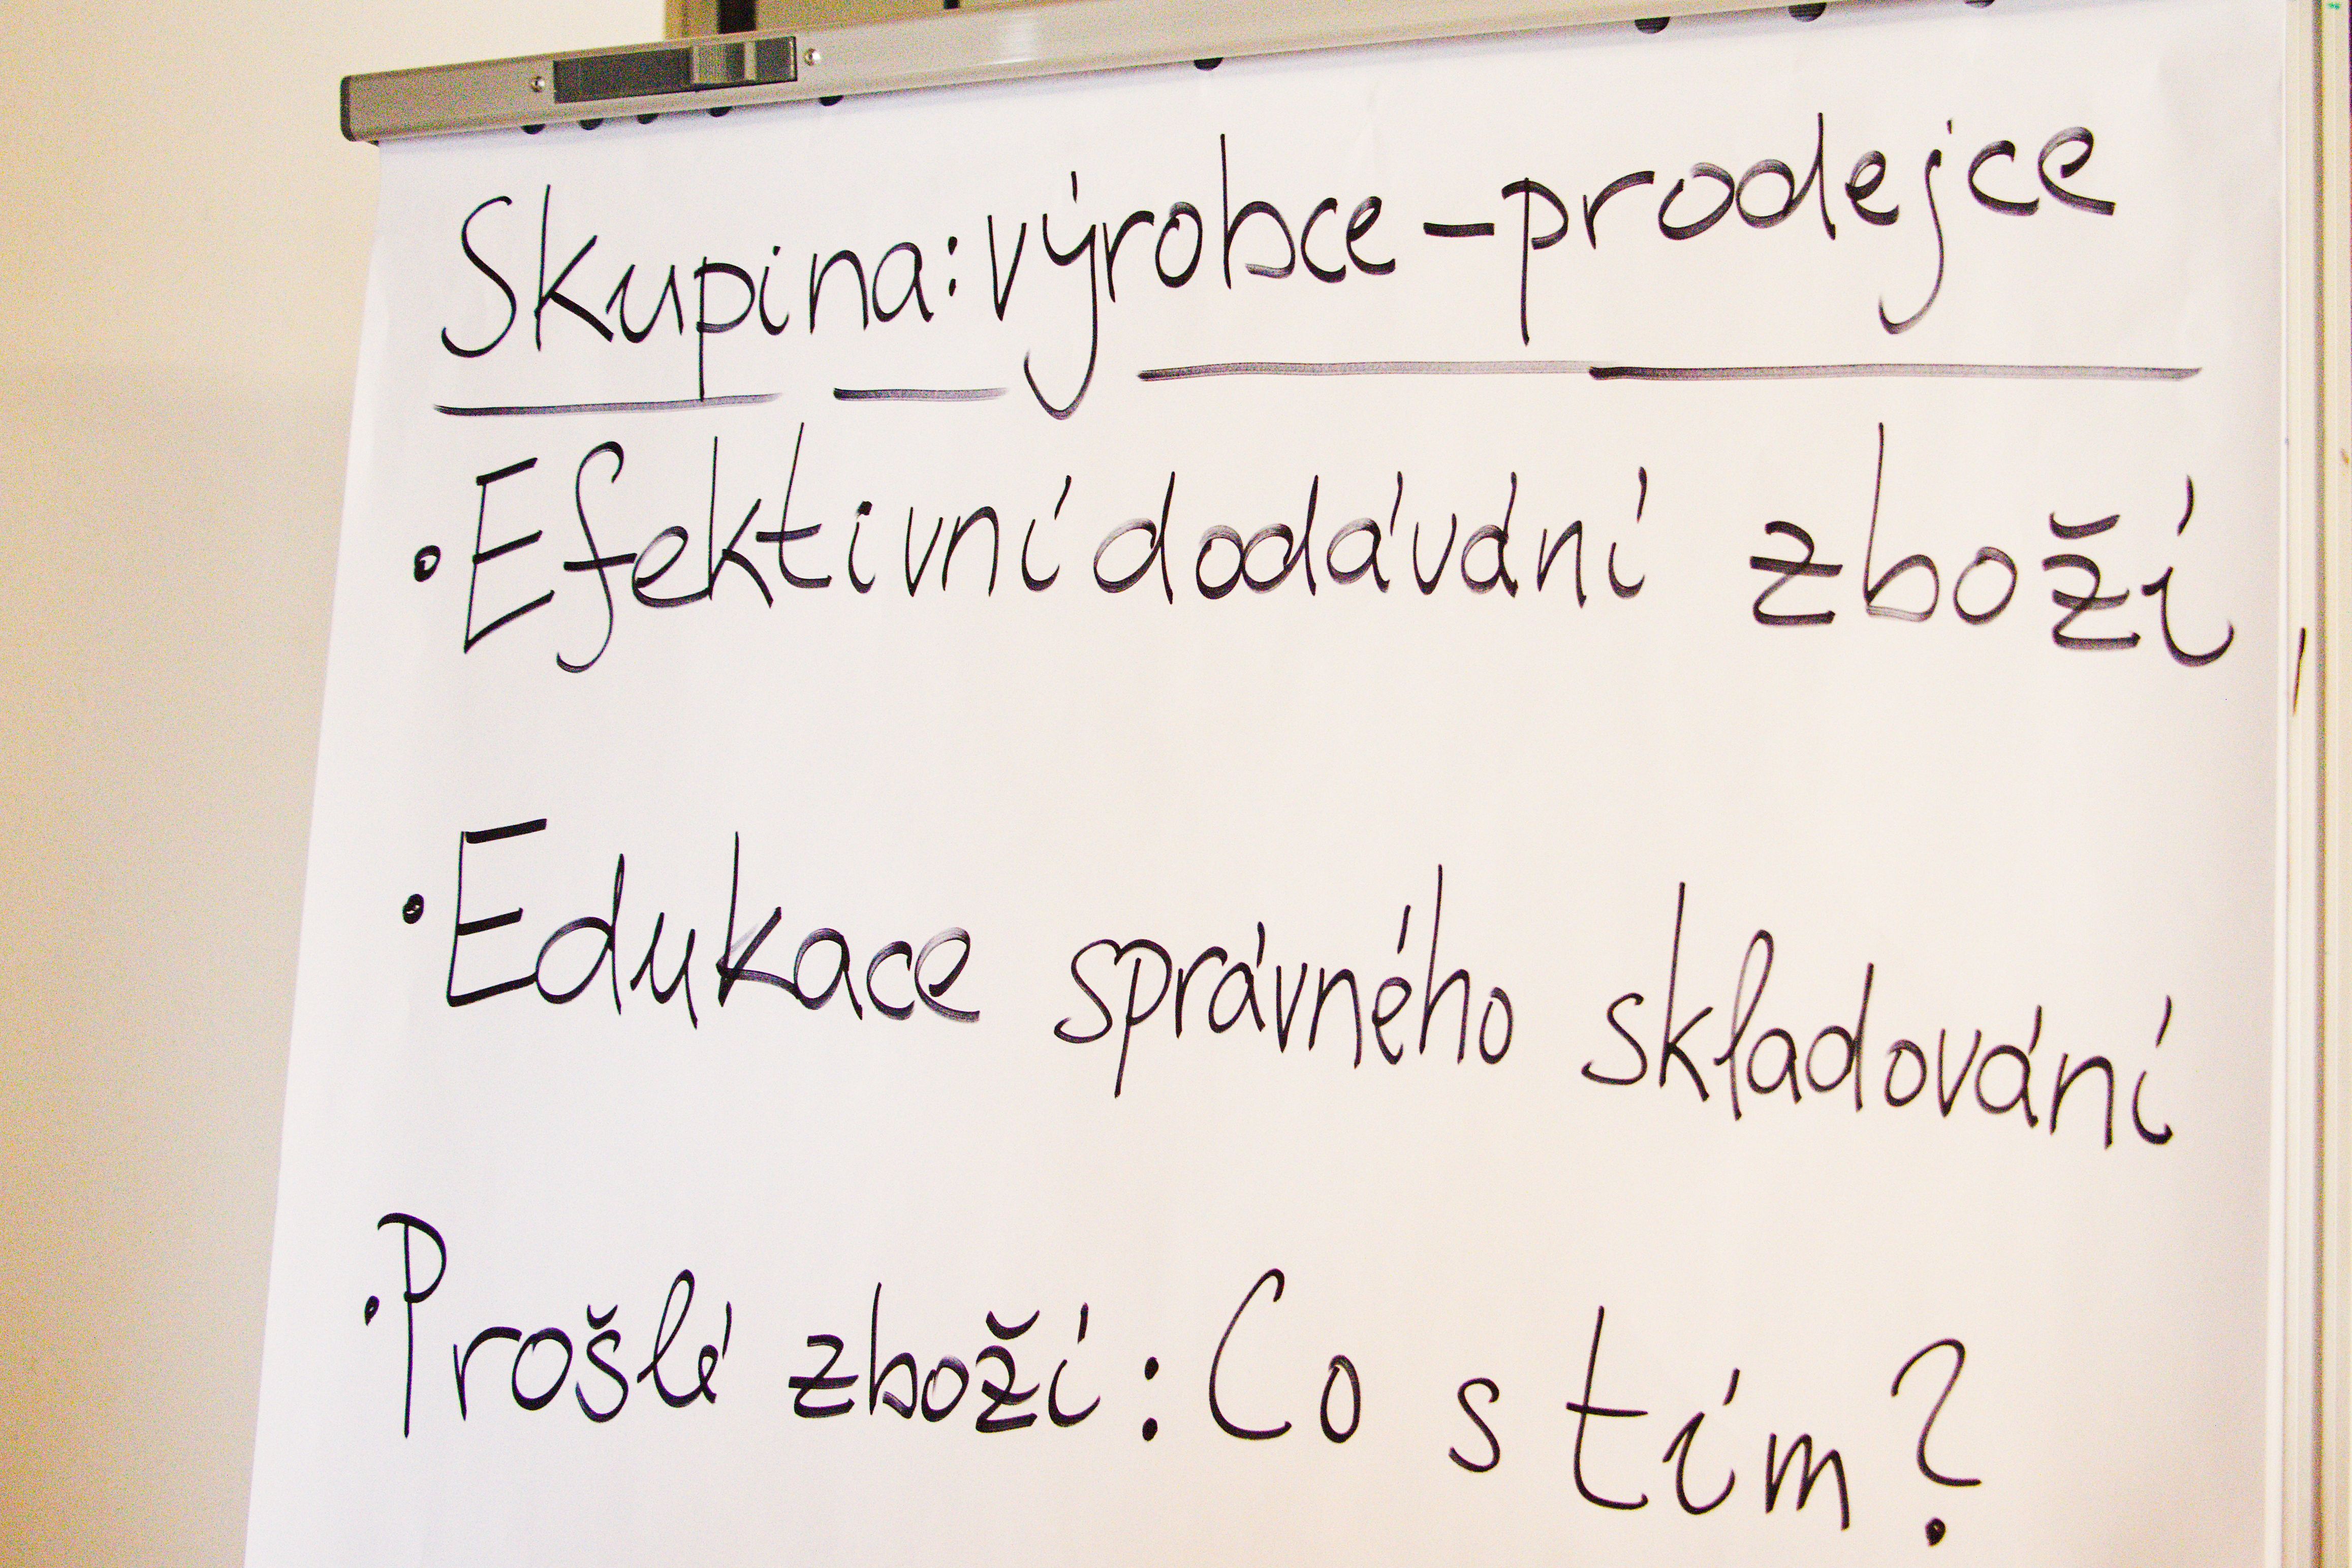 Skupina: výrobce - prodejce
• Efektivní dodávání zboží
• Edukace správného skladování
• Prošlé zboží: Co s tím?